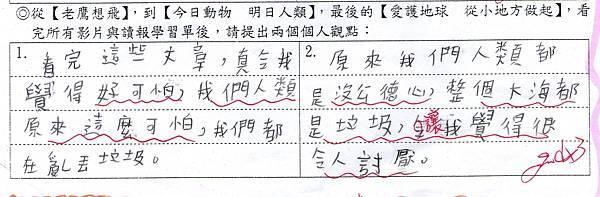 ◎從【老鷹想飛】,到【今日動物 明日人類】,最後的【愛護地球 從小地方做起】,看
完所有影片與讀報學習單後,請提出兩個個人觀點:
1. 看完這些文章,真令我
覺得好可怕,我們人類
原來這麼可怕,我們都
在亂丟垃圾。
2. 原來我們人類都
是沒公德心,整個大海都
是垃圾,讓我覺得很
令人討厭。